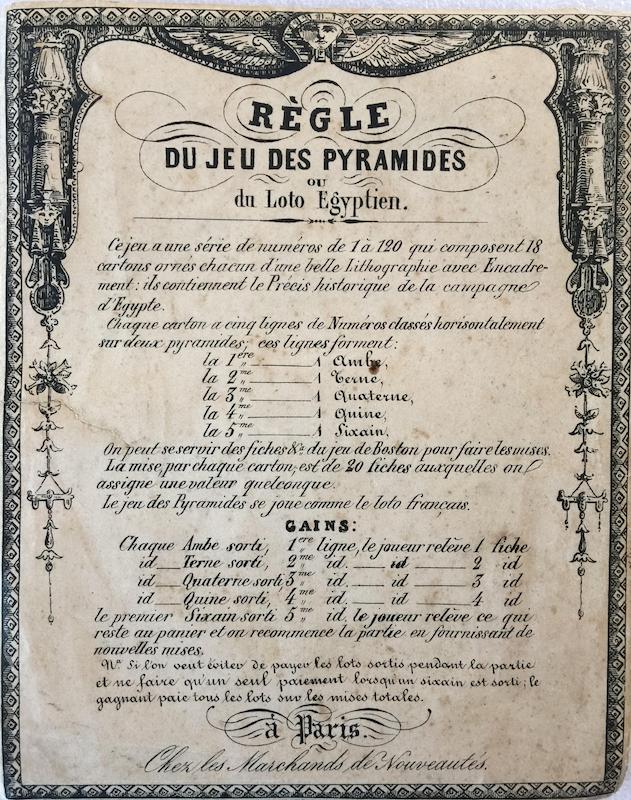 RÈGLE
DU JEU DES PYRAMIDES
OU
du Loto Egyptien.
Ce jeu a une série de numéros de 1 à 120 qui composent 18
cartons ornés chacun d'une belle Lithographie avec Encadre-
ment: ils contiennent le Précis historique de la campagne
d'Egypte.
Chaque carton a cinq lignes de Numéros classés horisontalement
sur deux pyramides; ces lignes forment:
la 1ère 1 Ambe,
la 2me 1 Terne,
la 3me 1 Quaterne,
la 4me 1 Quine,
la 5me 1 Sixain,
On peut se servir des fiches &a. du jeu de Boston pour faire les mises.
La mise, par chaque carton, est de 20 fiches auxquelles on
assigne une valeur quelconque.
Le jeu des Pyramides se joue comme le loto français.
GAINS:
Chaque Ambe sorti, 1ere ligne, le joueur relève 1 fiche
id Terne sorti, 2me id. id 2 id
id Quaterne sorti 3me id. 3 id
id Quine sorti, 4me id. 4 id
le premier Sixain sorti 5me id. le joueur relève ce qui
reste au panier et on recommence la partie en fournissant de
nouvelles mises.
Na Si l'on veut éviter de payer les lots sortis pendant la partie
et ne faire qu'un seul paiement lorsqu'un sixain est sorti; le
gagnant paie tous les lots sur les mises totales.
à Paris.
Chez les Marchands de Nouveautés.